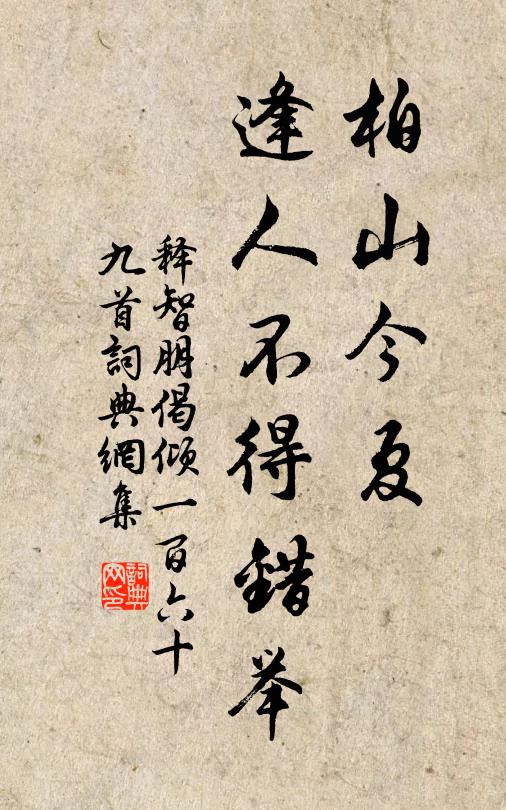 柏山今夏
逢人不得錯举
释智朋偈倾一百六十
九首詞典網集
詞典
网印